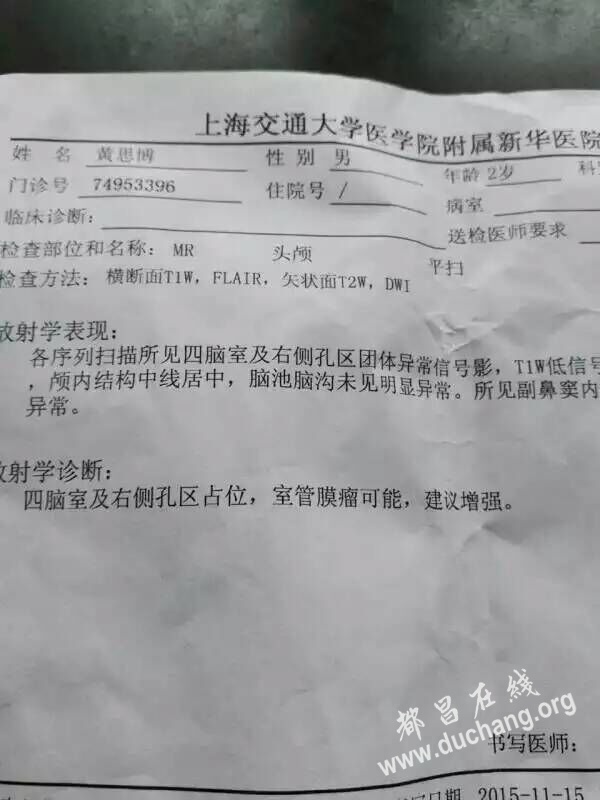 上海交通大学医学院附属新华医院
姓 名 黄思博 性 别 男 年龄 2岁 科室
门诊号 74953396 住院号 / 病室
临床诊断: 送检医师要求
检查部位和名称: MR 头颅 平扫
检查方法: 横断面T1W, FLAIR, 矢状面T2W, DWI
放射学表现:
各序列扫描所见四脑室及右侧孔区团体异常信号影, T1W低信号
, 颅内结构中线居中, 脑池脑沟未见明显异常。所见副鼻窦内
异常。
放射学诊断:
四脑室及右侧孔区占位, 室管膜瘤可能, 建议增强。
都昌在線
www.duchang.org
书写医师:
日期 2015-11-15